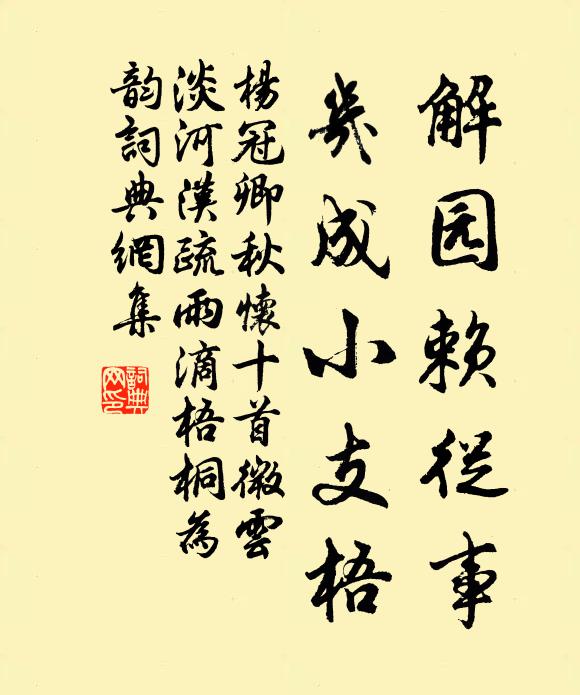 解园赖從事
幾成小支梧
楊冠卿秋懷十首微雲
淡河漢疏雨滴梧桐為
韵詞典網集
詞典
网印